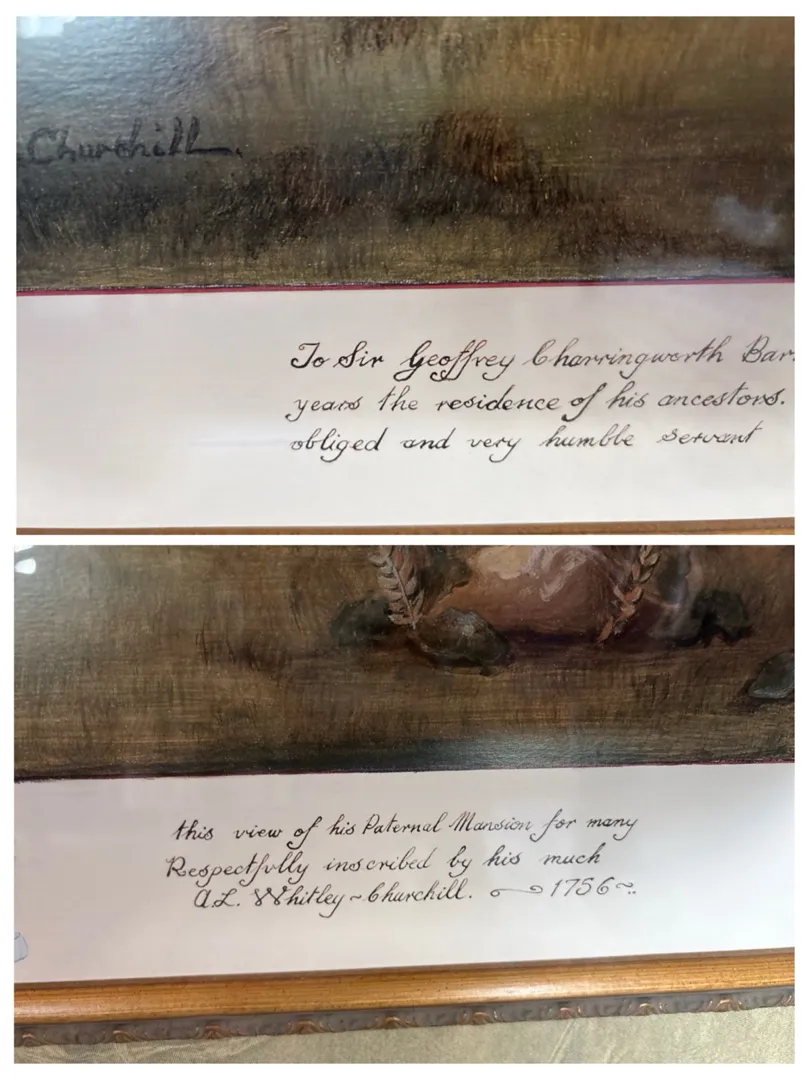 Churchill.
To Sir Geoffrey Charringworth Bar
years the residence of his ancestors.
obliged and very humble servant
this view of his Paternal Mansion for many
Respectfully inscribed by his much
A.L. Whitley~Churchill. 1756